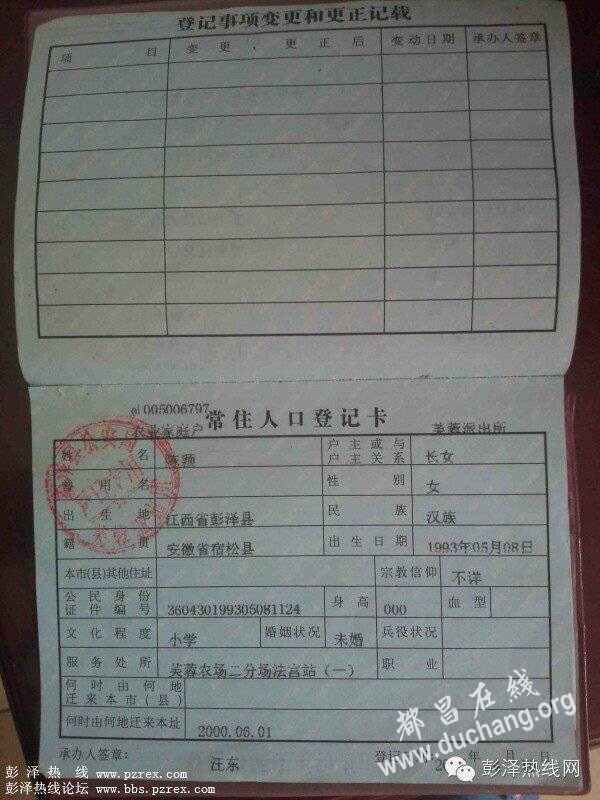 登记事项变更和更正记载
项 目 变 更 、 更 正 后 变动日期 承办人签章
005006797
常住人口登记卡
农业家庭户 芙蓉派出所
姓 名 陈颖 户主或与户主关系 长女
曾用名 性 别 女
出生地 江西省彭泽县 民 族 汉族
籍 贯 安徽省宿松县 出生日期 1993年05月08日
本市(县)其他住址 宗教信仰 不详
公民身份证件编号 360430199305081124 身高 000 血型
文化程度 小学 婚姻状况 未婚 兵役状况
服务处所 芙蓉农场二分场法宫站（一） 职 业
何时由何地迁来本市(县)
何时由何地迁来本址 2000.06.01
承办人签章： 汪东 登记
年 月
都昌在线
www.duchang.org
彭泽热线 www.pzrex.com
彭泽热线论坛 www.bbs.pzrex.com
彭泽热线网